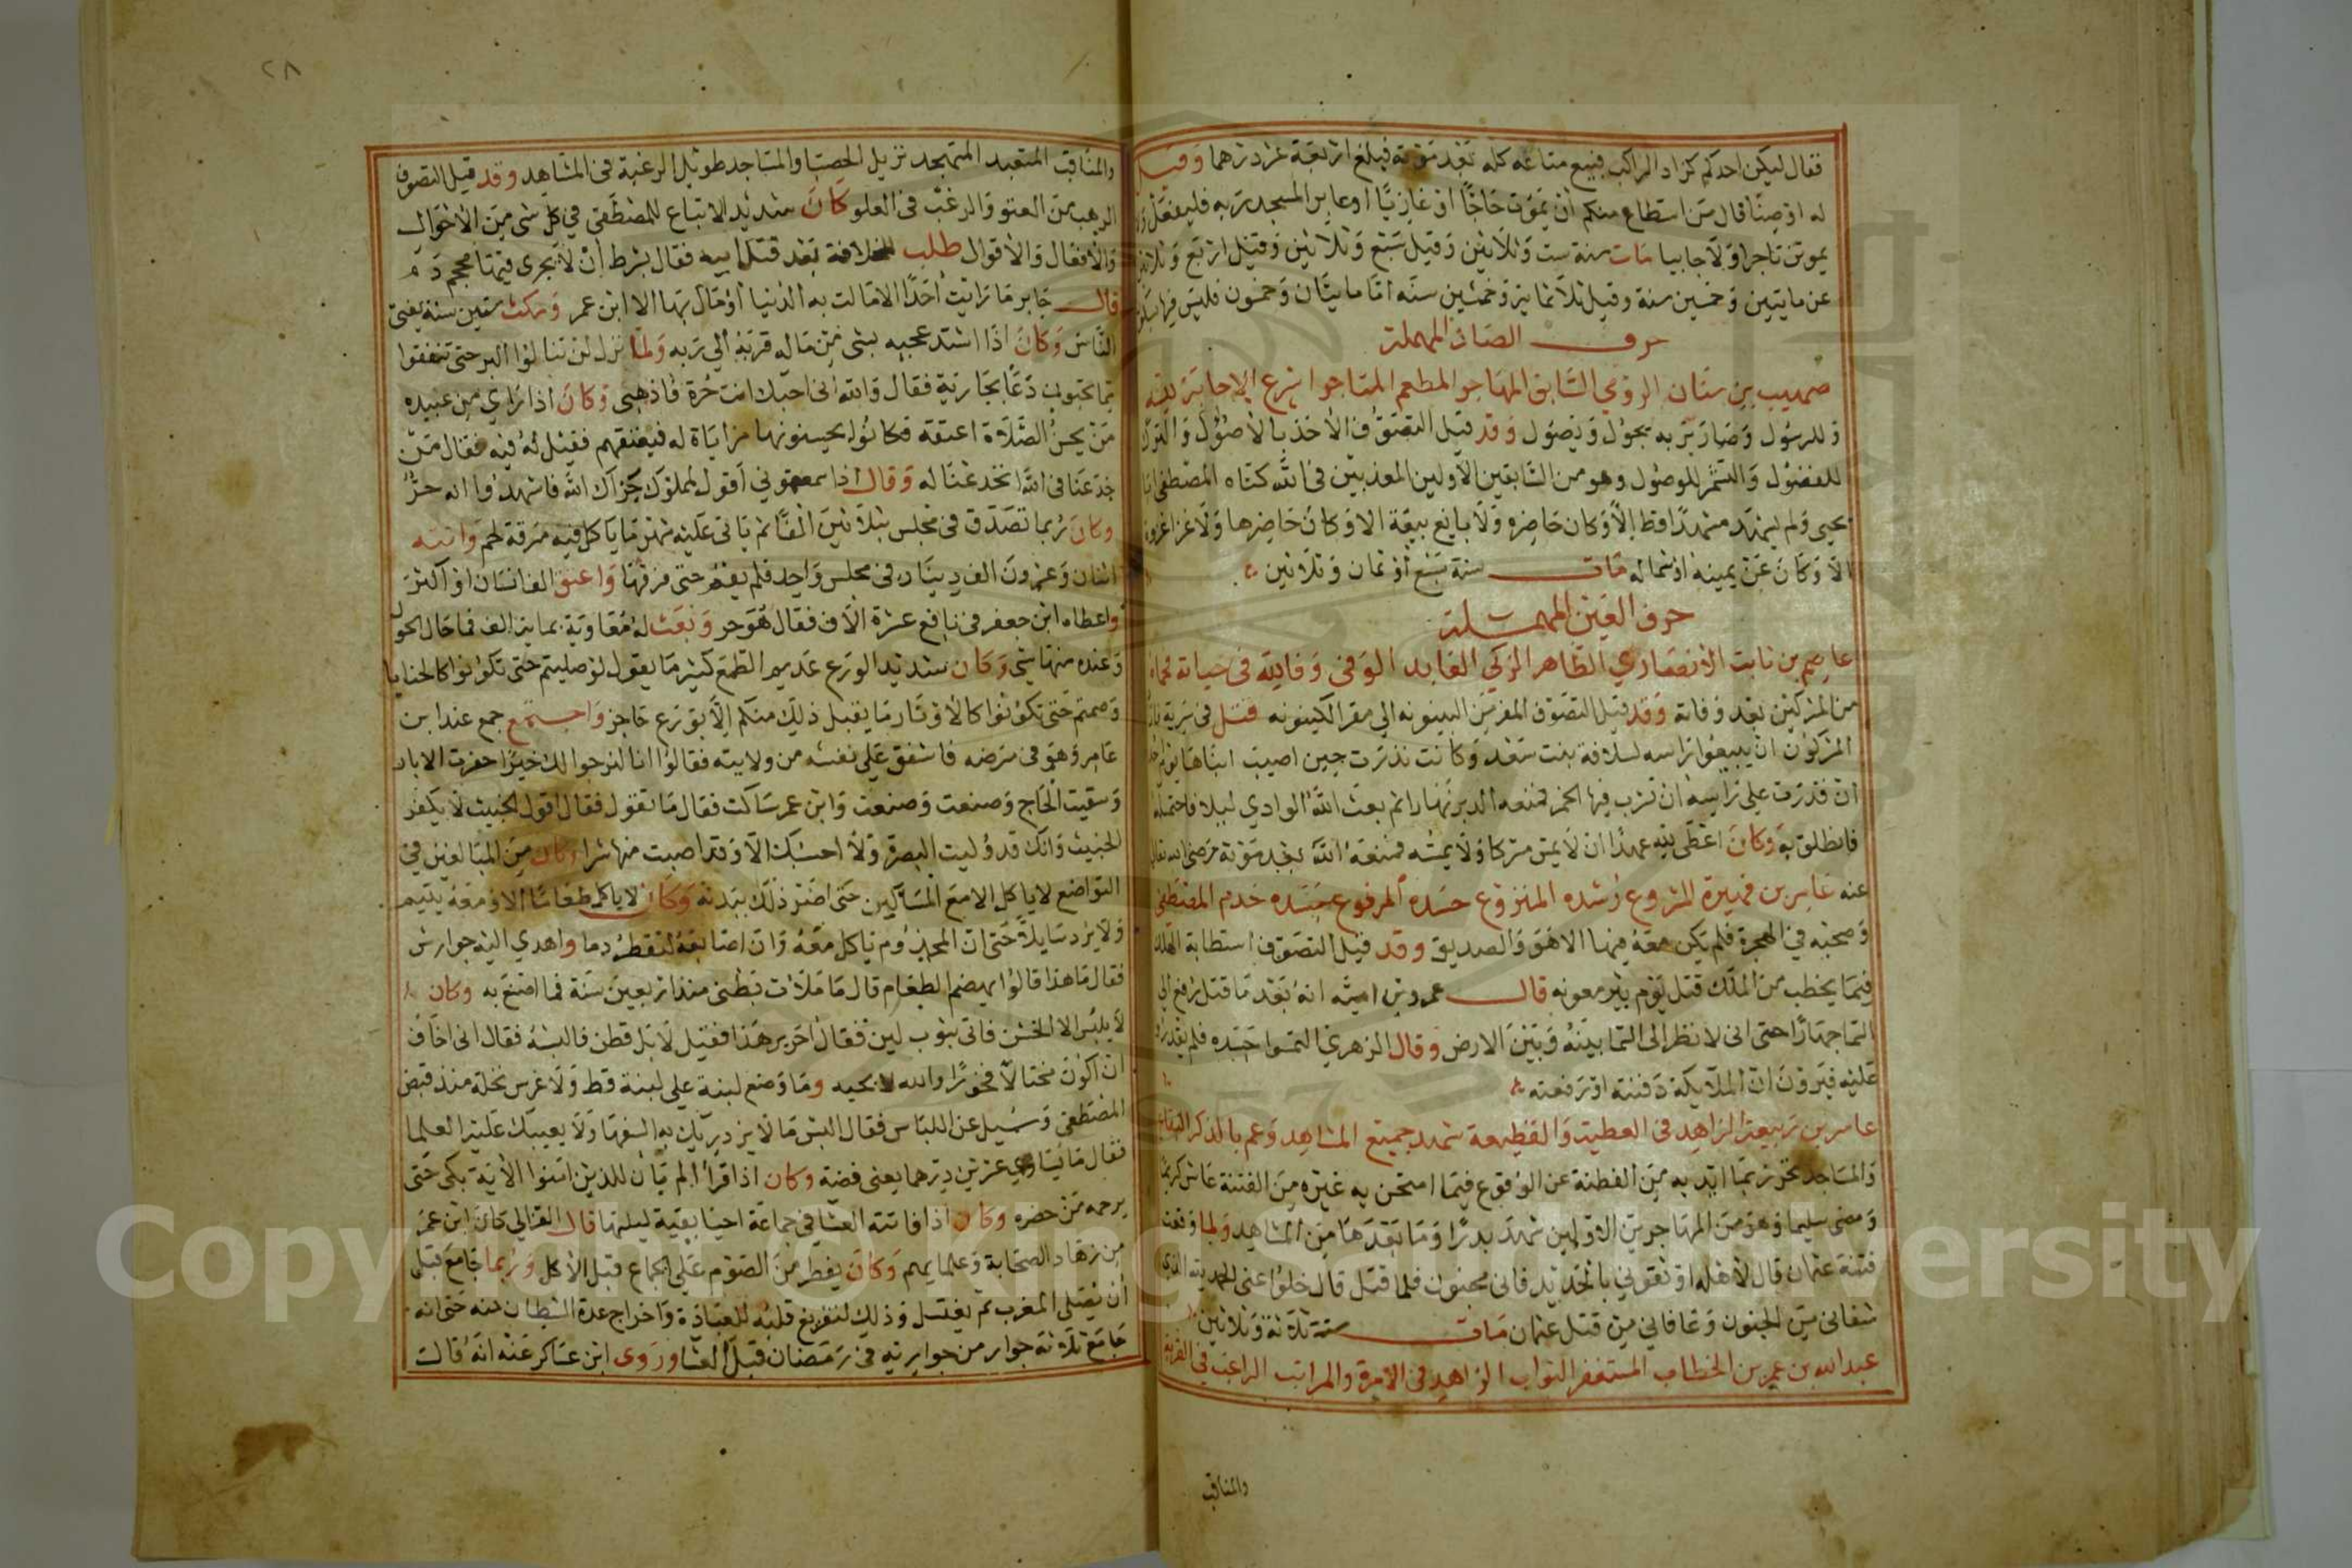 فقال ليكن احدكم كزاد الراكب فبيع متاعه كله بعد موته فبلغ اربعة عشر درهما وقيل
له اوصنا قال من استطاع منكم ان يموت حاجا او غازيا او عامر المسجد ربه فليفعل ولا
يموتن تاجرا ولا جابيا مات سنة ست وثلاثين وقيل سبع وثلاثين وقيل اربع وثلاثين
عن مايتين وخمسين سنة وقيل ثلاثماية وخمسين سنة اما مايتان وخمسون فليس فيها
حرف الصاد المهملة
صهيب بن سنان الرومي السابق المهاجر المطعم المتاجر اسرع الاجابة
وللرسول وصار بربه يجول ويصول وقد قيل التصوف الاخذ بالاصول والترك
للفضول والتشمر للوصول وهو من السابقين الاولين المعذبين في الله كناه المصطفى ابا
يحيى ولم يشهد مشهدا قط الا وكان حاضره ولا بايع بيعة الا وكان حاضرها ولا غزا غزوة
الا وكان عن يمينه او شماله مات سنة سبع او ثمان وثلاثين
حرف العين المهملة
عاصم بن ثابت الانصاري الطاهر الزكي العابد الوفي وفا لله في حياته فحماه
من المشركين بعد وفاته وقد قيل التصوف المفر من البينونه الي مقر الكينونه قتل في سرية
المشركون ان يبيعوا راسه لسلافة بنت سعد وكانت نذرت حين اصيب ابناها يوم احد
ان قدرت علي راسه ان تشرب فيها الخمر فمنعه الدبر نهارا ثم بعث الله الوادي ليلا فاحتمله
فانطلق به وكان اعطي لله عهدا ان لا يمس مشركا ولا يمسه فمنعه الله بعد موته رضي الله تعالى
عنه عامر بن فهيرة المشروع رشده المنزوع حسده المرفوع جسده خدم المصطفى
وصحبه في الهجرة فلم يكن معه فيها الا هو والصديق وقد قيل التصوف استطابة الهلك
فيما يخطب من الملك قتل يوم بئر معونه قال عمرو بن امية انه بعد ما قتل رفع الي
السما جهارا حتى اني لانظر الى السما بينه وبين الارض وقال الزهري التمسوا جسده فلم يقدروا
عليه فيرون ان الملايكة دفنته او رفعته
عامر بن ربيعة الزاهد في العطية والقطيعة شهد جميع المشاهد وعم بالذكر البقاع
والمساجد تحرز بما ايد به من الفطنة عن الوقوع فيما امتحن به غيره من الفتنة عاش كريما
ومضي سليما وهو من المهاجرين الاولين شهد بدرا وما بعدها من المشاهد ولما وقعت
فتنة عثمان قال لاهله اوثقوني بالحديد فاني مجنون فلما قتل قال خلوا عني الحمد لله الذي
شفاني من الجنون وعافاني من قتل عثمان مات سنة ثلاثة وثلاثين
عبد الله بن عمر بن الخطاب المستغفر التواب الزاهد في الامرة والمراتب الراغب في القربة
والمناقب
٢٨
والمناقب المتعبد المتهجد نزيل الحصبا والمساجد طويل الرغبة في المشاهد وقد قيل التصوف
الرهب من العتو والرغب في العلو كان شديد الاتباع للمصطفى في كل شي من الاحوال
والافعال والاقوال طلب للخلافة بعد قتل ابيه فقال بشرط ان لا يجرى فيها محجم دم
قال جابر ما رايت احدا الا مالت به الدنيا او مال بها الا ابن عمر ومكث ستين سنة يفتي
الناس وكان اذا اشتد عجبه بشي من ماله قربه الي ربه ولما نزل لن تنالوا البر حتى تنفقوا
مما تحبون دعا بجارية فقال والله اني احبك انت حرة فاذهبي وكان اذا راي من عبيده
من يحسن الصلاة اعتقه فكانوا يحسنونها مراياة له فيعتقهم فقيل له فيه فقال من
خدعنا في الله انخدعنا له وقال اذا سمعتموني اقول لمملوك جزاك الله فاشهدوا انه حر
وكان ربما تصدق في مجلس بثلاثين الفا ثم ياتي عليه شهر ما ياكل فيه مرقة لحم واتته
اثنان وعشرون الف دينار في مجلس واحد فلم يقم حتى فرقها واعتق الف انسان او اكثر
واعطاه ابن جعفر في نافع عشرة الاف فقال هو حر وبعث له معاوية بماية الف فما حال الحول
وعنده منها شي وكان شديد الورع عديم الطمع كثير ما يقول لو صليتم حتى تكونوا كالحنايا
وصمتم حتى تكونوا كالاوتار ما يقبل ذلك منكم الا بورع حاجز واجتمع جمع عند ابن
عامر وهو في مرضه فاشفق علي نفسه من ولايته فقالوا انا لنرجوا لك خيرا حفرت الابار
وسقيت الحاج وصنعت وصنعت وابن عمر ساكت فقال ما تقول فقال اقول الخبيث لا يكفر
الخبيث وانك قد وليت البصرة ولا احسبك الا وقد اصبت منها شرا وكان من المبالغين في
التواضع لا ياكل الا مع المساكين حتى اضر ذلك ببدنه وكان لا ياكل طعاما الا ومعه يتيم
ولا يرد سايلا حتى ان المجذوم ياكل معه وان اصابعه لتقطر دما واهدي اليه جوارش
فقال ما هذا قالوا يهضم الطعام قال ما ملات بطني منذ اربعين سنة فما اصنع به وكان
لا يلبس الا الخشن فاتي بثوب لين فقال احرير هذا فقيل لا بل قطن فالبسه فقال اني اخاف
ان اكون مختالا فخورا والله لا يحبه وما وضع لبنة علي لبنة قط ولا غرس نخلة منذ قبض
المصطفى وسيل عن اللباس فقال البس ما لا يزدريك به السفها ولا يعيبك عليه العلما
فقال ما يساوي عشرين درهما يعني فضة وكان اذا قرا الم يان للذين امنوا الاية بكى حتى
يرحمه من حضره وكان اذا فاتته العشا في جماعة احيا بقية ليلتها قال الغزالي كان ابن عمر
من زهاد الصحابة وعلمايهم وكان يفطر من الصوم علي الجماع قبل الاكل وربما جامع قبل
ان يصلي المغرب ثم يغتسل وذلك لتفريغ قلبه للعبادة واخراج عدة الشيطان منه حتى انه
جامع ثلاثة جوار من جواريه في رمضان قبل العشا وروى ابن عساكر عنه انه قالت
Copyright © King Saud University